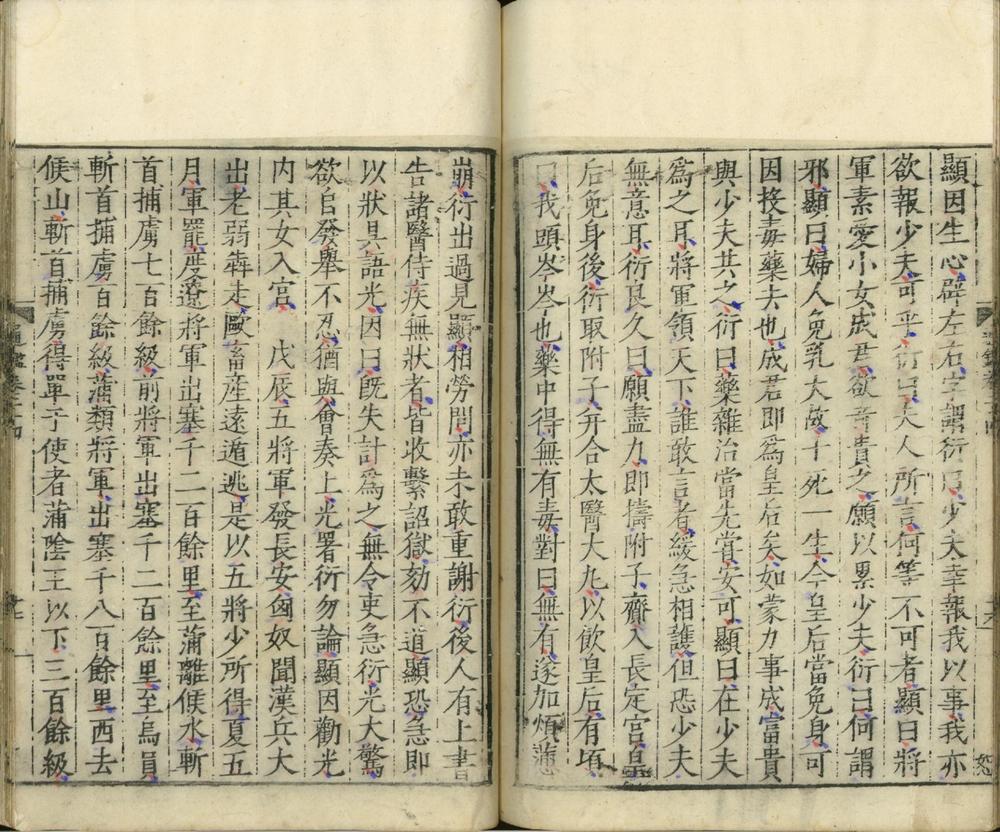 顯因生心辟左右字謂衍曰少夫幸報我以事我亦
欲報少夫可乎衍曰夫人所言何等不可者顯曰將
軍素愛小女成君欲奇貴之願以累少夫衍曰何謂
邪顯曰婦人免乳大故十死一生今皇后當免身可
因投毒藥去也成君即爲皇后矣如蒙力事成富貴
與少夫共之衍曰藥雜治當先嘗安可顯曰在少夫
爲之耳將軍領天下誰敢言者緩急相護但恐少夫
無意耳衍良久曰願盡力即擣附子齎入長定宮皇
后免身後衍取附子并合太醫大丸以飲皇后有頃
曰我頭岑岑也藥中得無有毒對曰無有遂加煩懣
崩衍出過見顯相勞問亦未敢重謝衍後人有上書
告諸醫侍疾無狀者皆收繫詔獄劾不道顯恐急即
以狀具語光因曰旣失計爲之無令吏急衍光大驚
欲自發舉不忍猶與會奏上光署衍勿論顯因勸光
内其女入宮 戊辰五將軍發長安匈奴聞漢兵大
出老弱犇走毆畜產遠遁逃是以五將少所得夏五
月軍罷度遼將軍出塞千二百餘里至蒲離候水斬
首捕虜七百餘級前將軍出塞千二百餘里至烏員
斬首捕虜百餘級蒲類將軍出塞千八百餘里西去
候山斬首捕虜得單于使者蒲陰王以下三百餘級